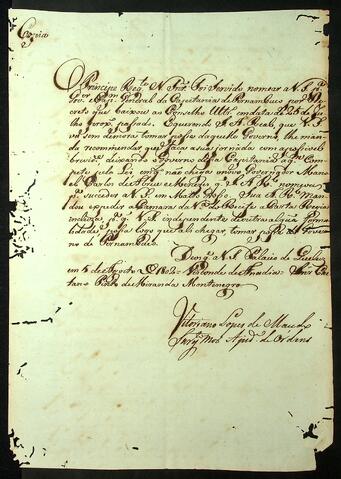 Copia
O Principe Reg.te N. Snr. Foi Servido nomear a V. S. p.a
Gov.or e Cap.m General da Capitania de Pernambuco por De-
creto que baixou ao Conselho Ult.o em data de 25 de Ju-
lho prox.o passado. E querendo S. A. Real, que V. S.
vá sem demora tomar posse daquelle Governo, lhe man-
da recommendar que faça a sua jornada com a possivel
brevid.e deixando o Governo dessa Capitania a q.m Com-
pete pela Lei emq.to não chega o novo Governador Mano-
el Carlos de Abreu e Menezes q. S. A. R. nomeou
p.a suceder a V. S. em Matto Grosso. Sua A. R. Man-
dou expedir a Camara da V.a do Recife a Carta Regia
incluza p.a q. V. S. independente de outra alguã forma-
lidade possa logo que ali chegar tomar posse do Governo
no de Pernambuco.
Deos g.e a V. S. Palacio de Queluz
em 5 de Agosto de 1802 = Visconde de Anadia = Snr. Cae-
tano Pinto de Miranda Montenegro.
Vitoriano Lopes de Macedo
Sarg.to Mor Ajud.e de Ordens